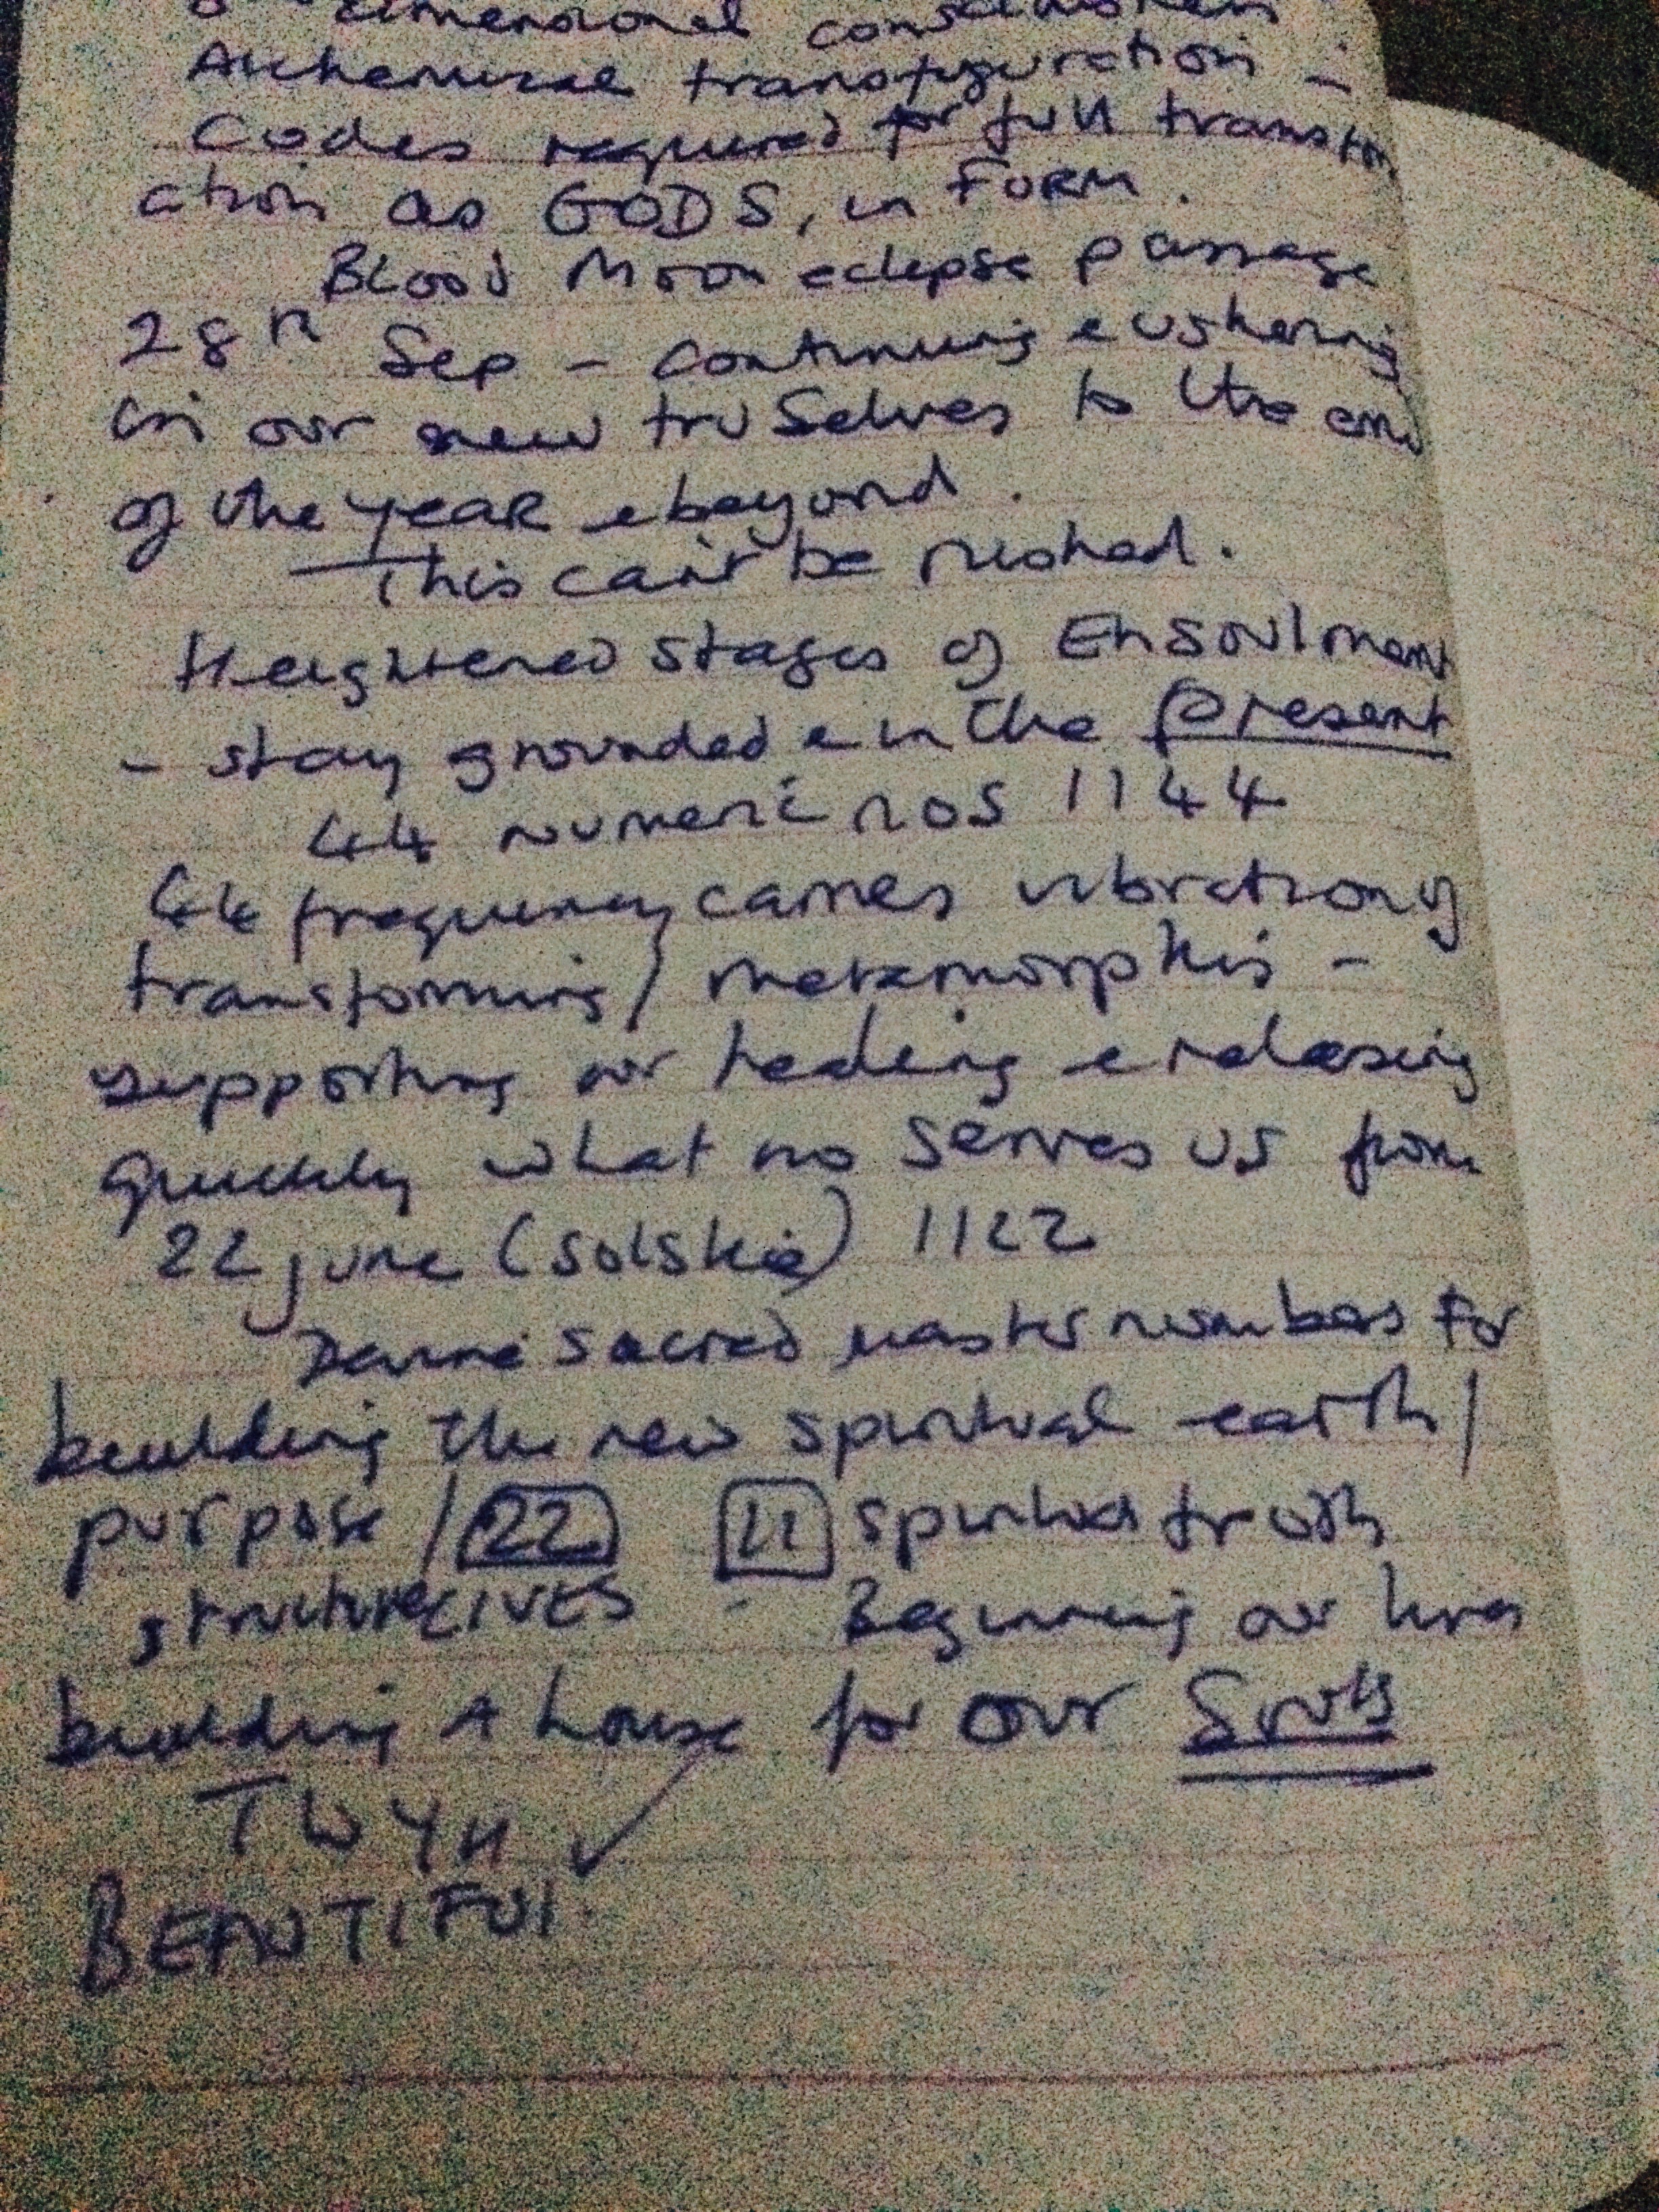 dimensional consciousness
Alchemical transfiguration -
Codes required for full transfor
ction as GODS, in FORM.
Blood Moon eclipse passage
28th Sep - continuing & ushering
in our new truSelves to the end
of the year & beyond.
This can't be rushed.
Heightened stages of Ensoulment
- stay grounded & in the present
44 numeric nos 1144
44 frequency carries vibration of
transforming/metamorphis -
supporting our healing & releasing
quickly what no serves us from
22 june (solstice) 1122
Devine sacred master numbers for
building the new spiritual earth/
purpose/22 11 spiritual truth
structure LIVES - Beginning our lives
building A house for our Souls
BEAUTIFUl